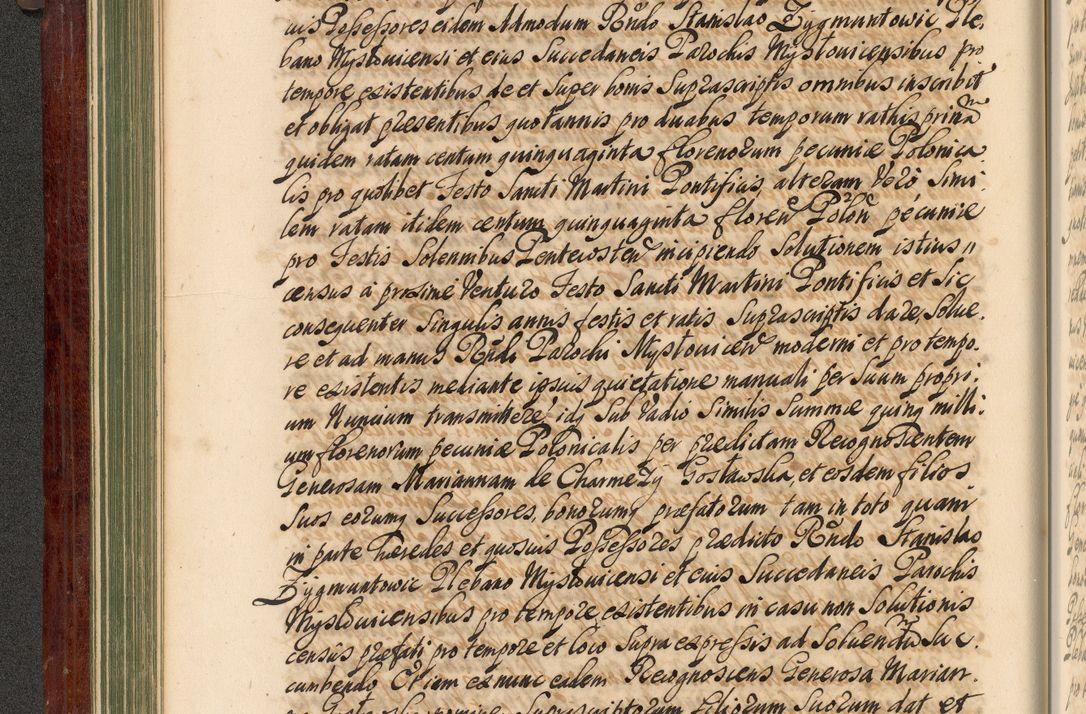 uis Possessores eidem Admodum Rñdo Stanislao Zygmuntowic Ple,
bano Mysłouicensi et eius Succedaneis Parochis Mysłouicensibus pro
tempore existentibus de et super bonis Suprascriptis omnibus inscribit
et obligat præsentibus quotannis pro duabus temporum rathis prima
quidem ratam centum quinquaginta florenorum pecuniæ Polonica,
lis pro quolibet Festo Sancti Martini Pontificis, alteram Vero Simi,
lem ratam itidem centum quinquaginta floren Polon pecuniæ
pro Festis Solennibus Pentecosten incipiendo Solutionem istius
census à proxime Venturo Festo Sancti Martini Pontificis et Sic
consequenter Singulis annis festis et ratis Suprascriptis dare, Solue,
re et ad manus Rñdi Parochi Mysłouicen moderni et pro tempo,
re existentis mediante ipsius quietatione manuali per Suum propri,
um Nuncium transmittere, idq Sub Vadio Similis Summæ quinq milli,
um florenorum pecuniæ Polonicalis per prædictam Recognoscentem
Generosam Mariannam de Charmęzy Gosławska, et eosdem filios
Suos eorumq Successores, bonorumq præfatorum tam in toto quam
in parte Hæredes et quosuis Possessores prædicto Rñdo Stanislao
Zygmuntowic Plebano Mysłouicensi et eius Succedaneis Parochis
Mysłouicensibus pro tempore existentibus in casu non Solutionis
census præfati pro tempore et loco Supra expressis ad Soluendum Suc,
cumbendo Et iam ex nunc eadem Recognoscens Generosa Marian,
na Gosławska nomine Suprascriptorum filiorum Suorum dat et